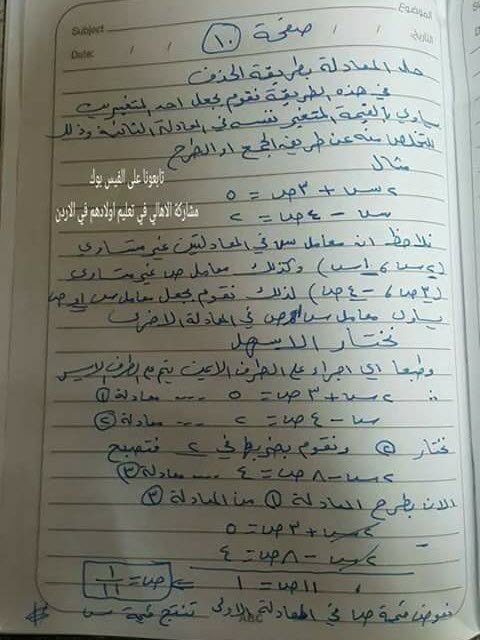 الموضوع
Subject
التاريخ / /
Date: / /
صفحة ١٠
حل المعادلة بطريقة الحذف
في هذه الطريقة نقوم بجعل احد المتغيرين
يساوي بالقيمة المتغير نفسه في المعادلة الثانية وذلك
للتخلص منه عن طريق الجمع او الطرح
مثال
تابعونا على الفيس بوك
٢س + ٣ص = ٥
مشاركة الاهالي في تعليم اولادهم في الاردن
س - ٤ص = ٢
نلاحظ ان معامل س في المعادلتين غير متساوي
(٢س ، ١س) وكذلك معامل ص غير متساوي
(٣ص ، -٤ص) لذلك نقوم بجعل معامل س او ص
يساوي معامل س ص في المعادلة الاخرى
نختار الاسهل
وطبعا اي اجراء على الطرف الايمن يتم مع الطرف الايسر
∵ ٢س + ٣ص = ٥ ... معادلة ①
س - ٤ص = ٢ ... معادلة ②
نختار ② ونقوم بضربها في ٢ فتصبح
٢س - ٨ص = ٤ ... معادلة ③
الان بطرح المعادلة ① من المعادلة ③
٢س + ٣ص = ٥
- ٢س - ٨ص = ٤
١١ص = ١ ⇐ ص = ١/١١
نعوض قيمة ص في المعادلة الاولى تنتج قيمة س
ABC